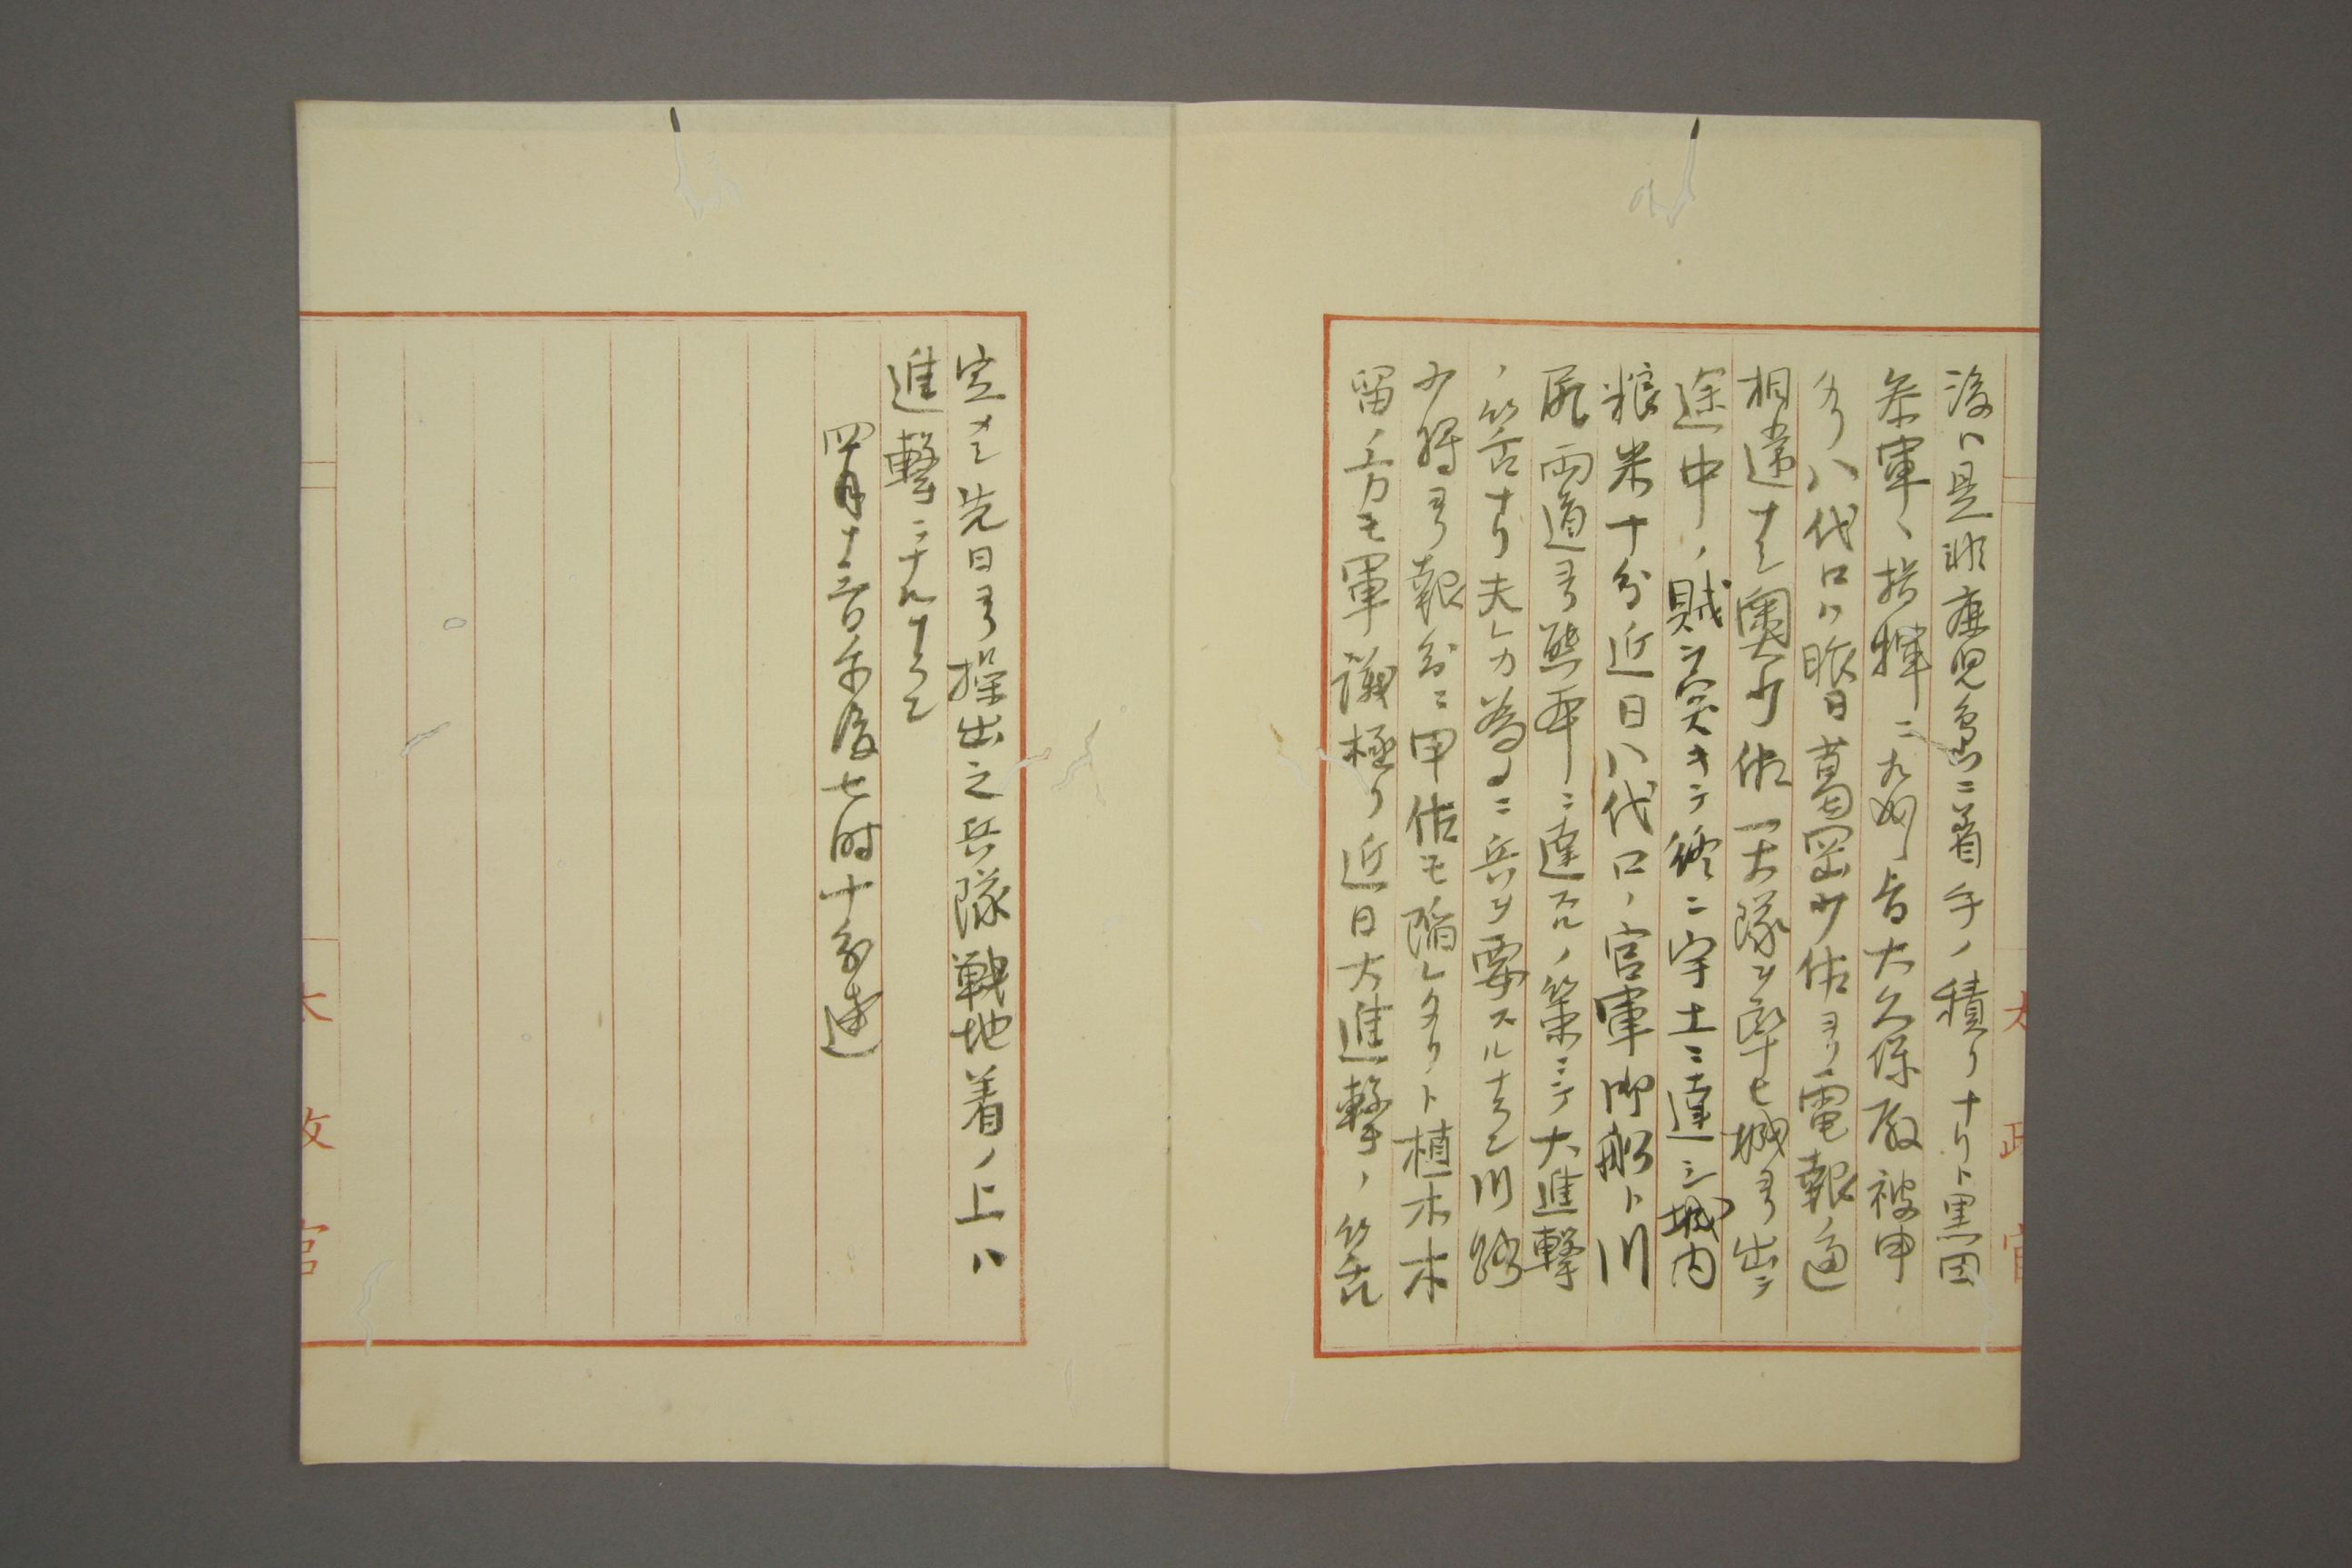 後ハ是非鹿児島ニ着手ノ積リナリト黒田
参軍ノ指揮ニ九州ノ旨大久保殿被申
タリ八代口ハ昨日葛岡少佐ヨリ電報ノ通
相違ナシ奥少佐一大隊ヲ率ヒ城ヨリ出テ
途中ノ賊ヲ突キテ終ニ宇土ニ達シ城内
粮米十分近日八代口ノ官軍御船ト川
尻両道ヨリ熊本ニ達スルノ策ニテ大進撃
ノ筈ナリ夫レカ為メニ兵ヲ要スルナラン川路
少将ヨリ報知ニ甲佐モ陥レタリト植木木
留ノ方モ軍議極リ近日大進撃ノ筈
定メシ先日ヨリ操出之兵隊戦地着ノ上ハ
進撃ニナルナラン
四月十一日午後七時十分達
太政官
太政官